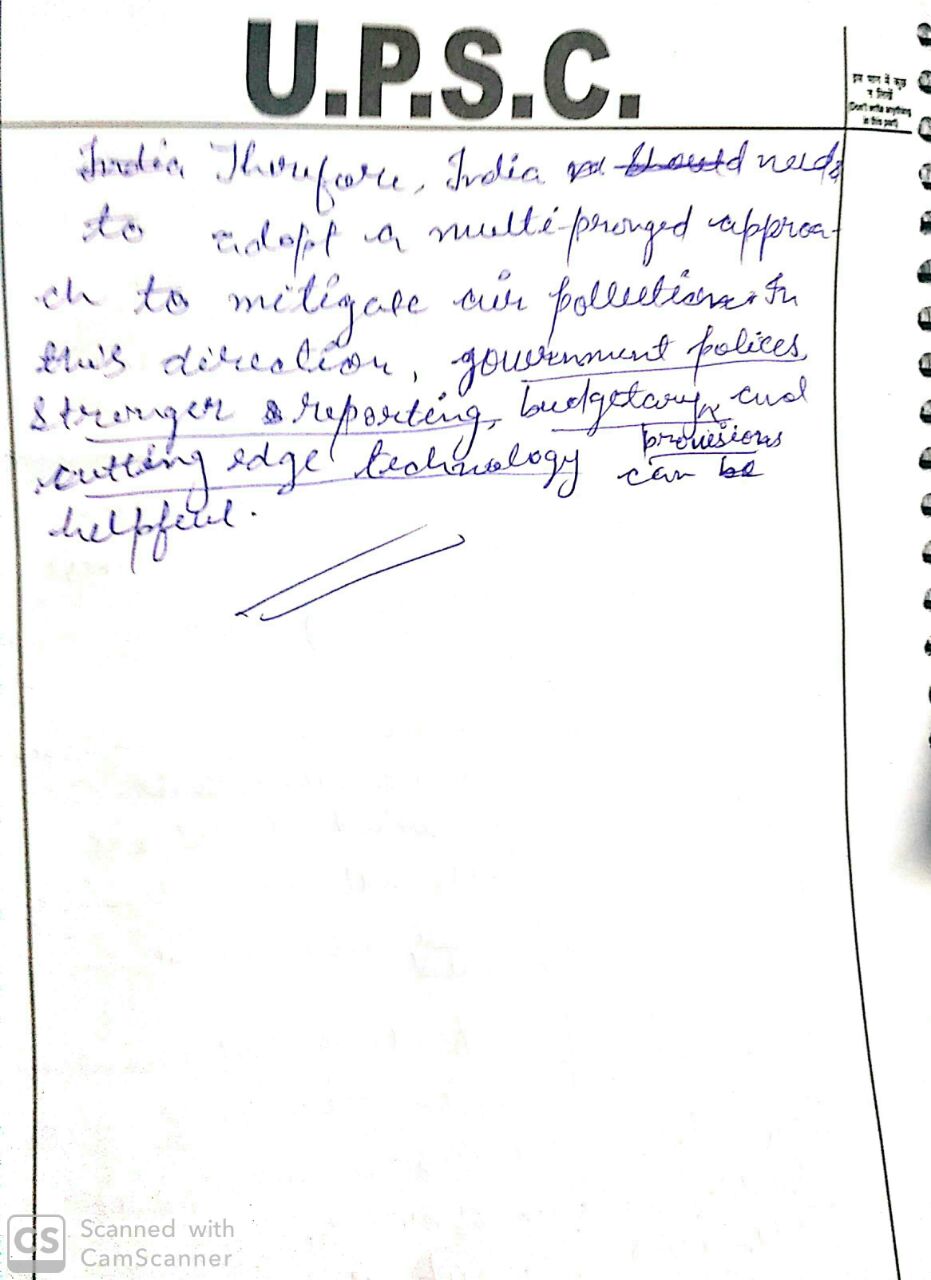 U.P.S.C.
इस भाग में कुछ
न लिखें
(Don't write anything
in this part)
India Therefore, India should needs
to adopt a multi-pronged approa-
ch to mitigate air pollution. In
this direction, government polices,
stronger reporting, budgetary and
provisions
cutting edge technology can be
helpful.
CS Scanned with
CamScanner